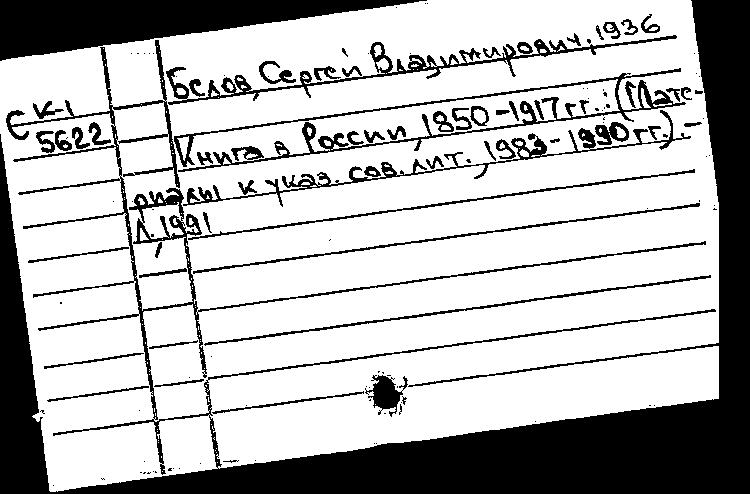 Белов, Сергей Владимирович, 1936
С К-1
5622
Книга в России, 1850-1917 гг.: (Мате-
риалы к указ. сов. лит., 1983-1990 гг.).-
Л., 1991